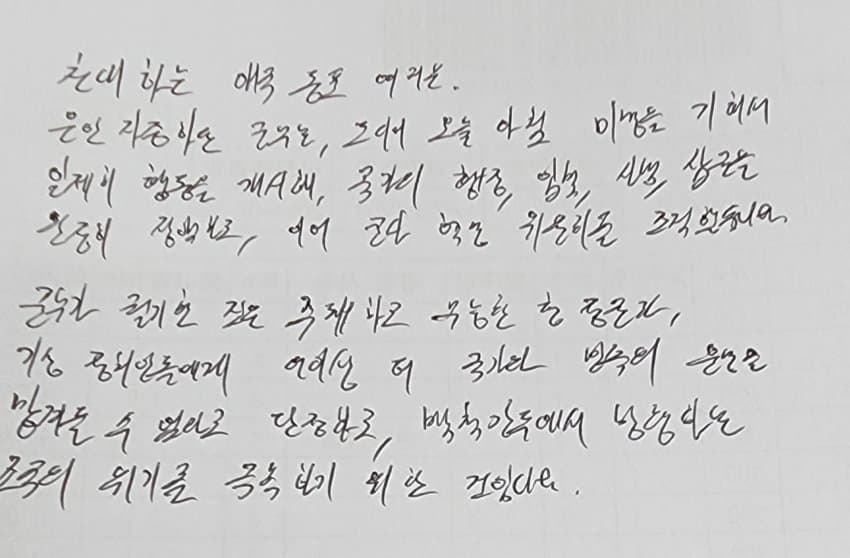 친애하는 애국 동포 여러분.
은인 자중하던 군부는, 드디어 오늘 아침 미명을 기해서
일제히 행동을 개시해, 국가의 행정, 입법, 사법, 삼권을
완전히 장악하고, 이어 군사 혁명 위원회를 조직했습니다.
군부가 궐기한 것은 부패하고 무능한 현 정권과,
기성 정치인들에게 이이상 더 국가와 민족의 운명을
맡겨둘 수 없다고 단정하고, 백척간두에서 방황하는
조국의 위기를 극복하기 위한 것입니다.